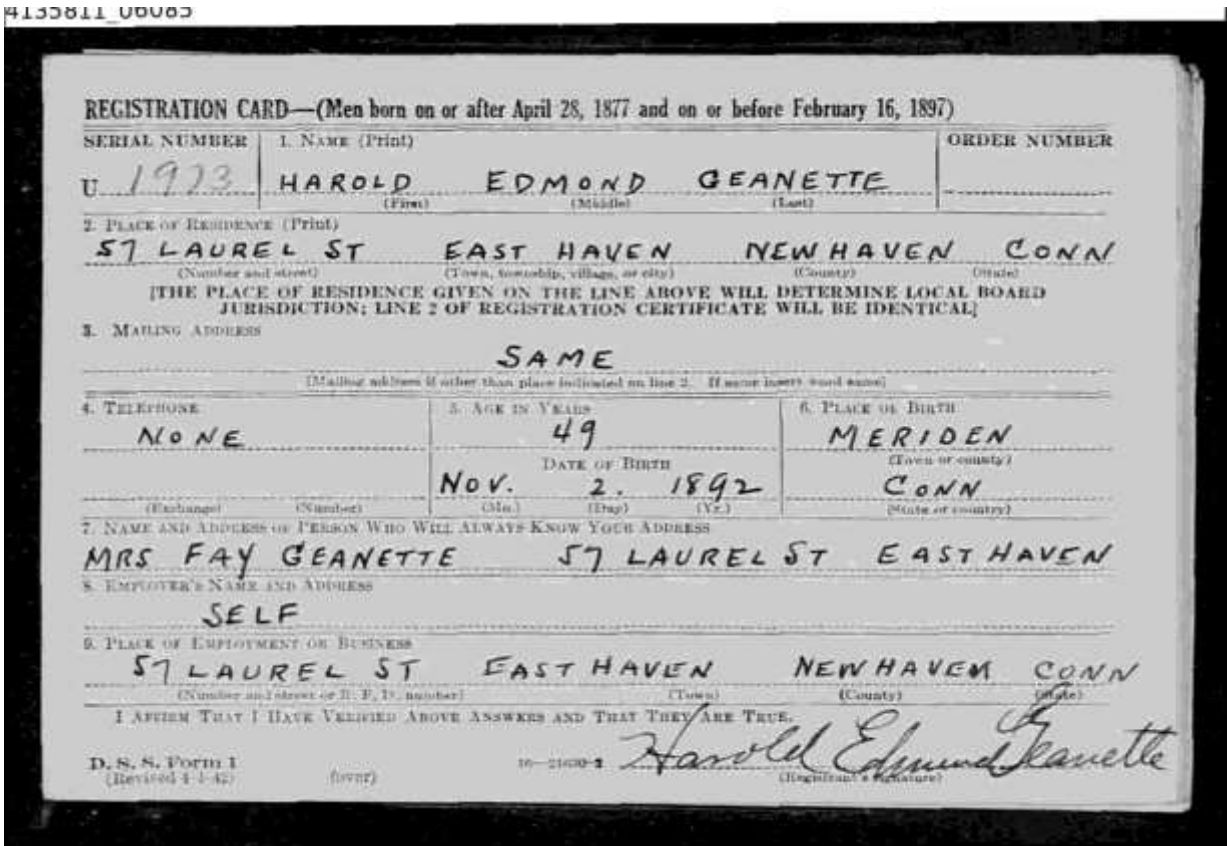 4135811_06085
REGISTRATION CARD—(Men born on or after April 28, 1877 and on or before February 16, 1897)
SERIAL NUMBER 1. NAME (Print) ORDER NUMBER
U 1923 HAROLD EDMOND GEANETTE
(First) (Middle) (Last)
2. PLACE OF RESIDENCE (Print)
57 LAUREL ST EAST HAVEN NEW HAVEN CONN
(Number and street) (Town, township, village, or city) (County) (State)
[THE PLACE OF RESIDENCE GIVEN ON THE LINE ABOVE WILL DETERMINE LOCAL BOARD
JURISDICTION; LINE 2 OF REGISTRATION CERTIFICATE WILL BE IDENTICAL]
3. MAILING ADDRESS
SAME
[Mailing address if other than place indicated on line 2. If same insert word same]
4. TELEPHONE 5. AGE IN YEARS 6. PLACE OF BIRTH
NONE 49 MERIDEN
DATE OF BIRTH (Town or county)
NOV. 2. 1892 CONN
(Exchange) (Number) (Mo.) (Day) (Yr.) (State or country)
7. NAME AND ADDRESS OF PERSON WHO WILL ALWAYS KNOW YOUR ADDRESS
MRS FAY GEANETTE 57 LAUREL ST EAST HAVEN
8. EMPLOYER'S NAME AND ADDRESS
SELF
9. PLACE OF EMPLOYMENT OR BUSINESS
57 LAUREL ST EAST HAVEN NEW HAVEN CONN
(Number and street or R. F. D. number) (Town) (County) (State)
I AFFIRM THAT I HAVE VERIFIED ABOVE ANSWERS AND THAT THEY ARE TRUE.
D. S. S. Form 1 16—21630-2 Harold Edmund Geanette
(Revised 4-1-42) (over) (Registrant's signature)